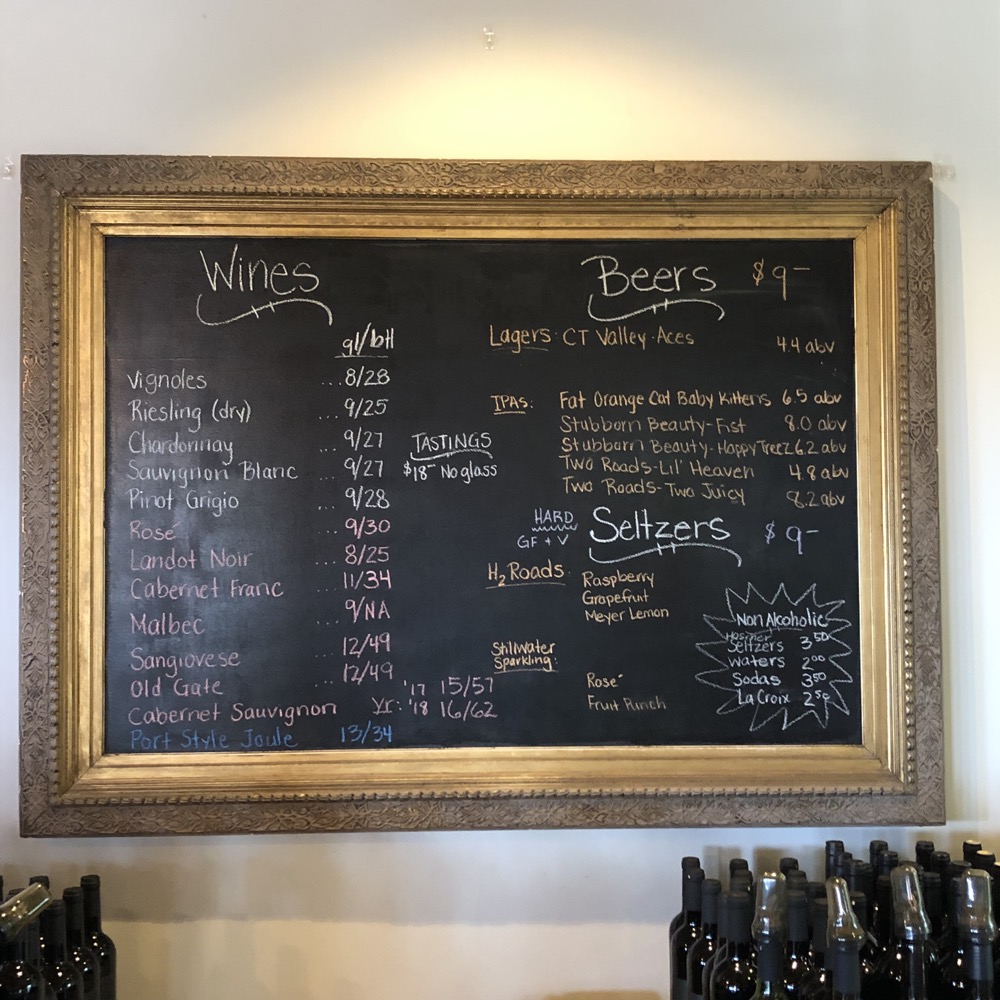 Wines
gl/btl
Vignoles ...8/28
Riesling (dry) ...9/25
Chardonnay ...9/27
Sauvignon Blanc ...9/27
Pinot Grigio ...9/28
Rosé ...9/30
Landot Noir ...8/25
Cabernet Franc ...11/34
Malbec ...9/NA
Sangiovese ...12/49
Old Gate ...12/49
Cabernet Sauvignon yr: '17 15/57
'18 16/62
Port Style Joule 13/34
TASTINGS
$18— No glass
Beers $9-
Lagers · CT Valley · Aces 4.4 abv
IPAs: Fat Orange Cat Baby Kittens 6.5 abv
Stubborn Beauty-Fist 8.0 abv
Stubborn Beauty-Happy Treez 6.2 abv
Two Roads-Lil' Heaven 4.8 abv
Two Roads-Two Juicy 8.2 abv
HARD
GF + V
Seltzers $9-
H2Roads Raspberry
Grapefruit
Meyer Lemon
Stillwater
Sparkling:
Rosé
Fruit Punch
Non Alcoholic
Hosmer
Seltzers 3.50
Waters 2.00
Sodas 3.50
La Croix